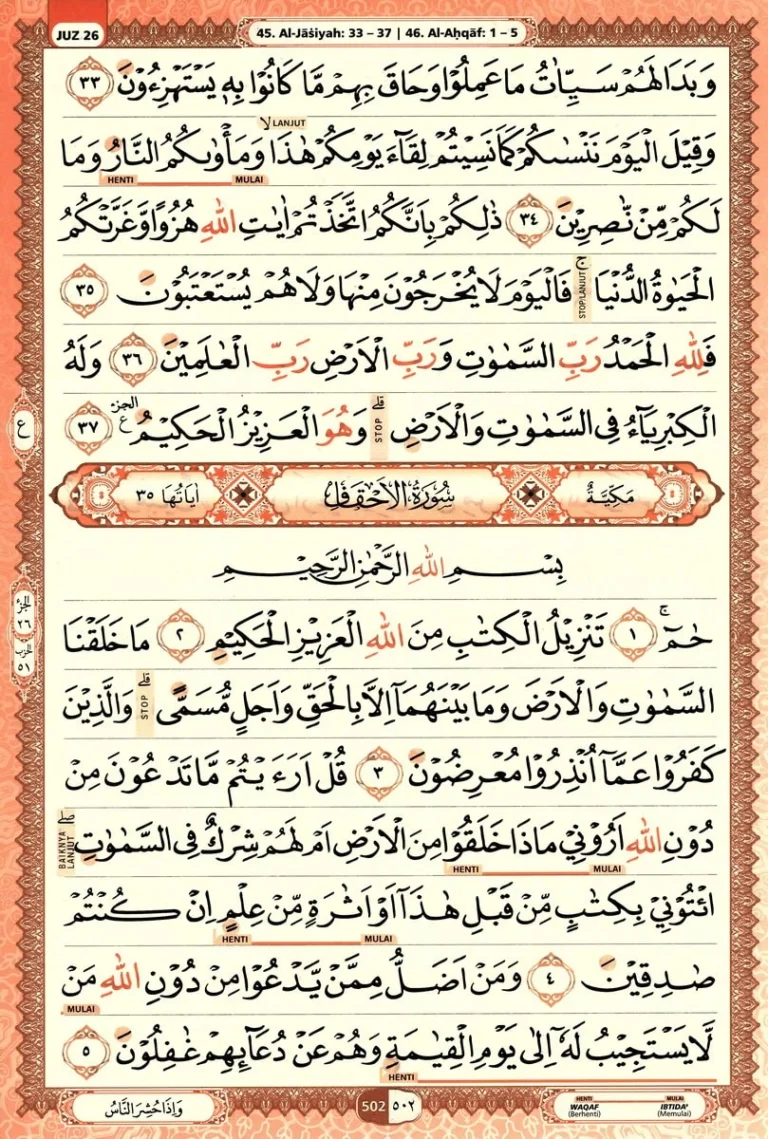 JUZ 26
45. Al-Jāṡiyah: 33 – 37 | 46. Al-Aḥqāf: 1 – 5
وَبَدَا لَهُمْ سَيِّاٰتُ مَا عَمِلُوْا وَحَاقَ بِهِمْ مَّا كَانُوْا بِهٖ يَسْتَهْزِءُوْنَ ٣٣
لا LANJUT
وَقِيْلَ الْيَوْمَ نَنْسٰىكُمْ كَمَا نَسِيْتُمْ لِقَاۤءَ يَوْمِكُمْ هٰذَا وَمَأْوٰىكُمُ النَّارُ وَمَا
MULAI HENTI
لَكُمْ مِّنْ نّٰصِرِيْنَ ٣٤ ذٰلِكُمْ بِاَنَّكُمُ اتَّخَذْتُمْ اٰيٰتِ اللّٰهِ هُزُوًا وَّغَرَّتْكُمُ
الْحَيٰوةُ الدُّنْيَا ۚ STOP/LANJUT فَالْيَوْمَ لَا يُخْرَجُوْنَ مِنْهَا وَلَا هُمْ يُسْتَعْتَبُوْنَ ٣٥
فَلِلّٰهِ الْحَمْدُ رَبِّ السَّمٰوٰتِ وَرَبِّ الْاَرْضِ رَبِّ الْعٰلَمِيْنَ ٣٦ وَلَهُ
الْكِبْرِيَاۤءُ فِى السَّمٰوٰتِ وَالْاَرْضِ ۗ STOP وَهُوَ الْعَزِيْزُ الْحَكِيْمُ الجزء ع ٣٧
ع
مَكِّيَّةٌ سُوْرَةُ الْاَحْقَافِ اٰيَاتُهَا ٣٥
بِسْمِ اللّٰهِ الرَّحْمٰنِ الرَّحِيْمِ
الجزء ٢٦
حزب ٥١
حٰمۤ ۚ ١ تَنْزِيْلُ الْكِتٰبِ مِنَ اللّٰهِ الْعَزِيْزِ الْحَكِيْمِ ٢ مَا خَلَقْنَا
السَّمٰوٰتِ وَالْاَرْضَ وَمَا بَيْنَهُمَآ اِلَّا بِالْحَقِّ وَاَجَلٍ مُّسَمًّى ۗ STOP وَالَّذِيْنَ
كَفَرُوْا عَمَّآ اُنْذِرُوْا مُعْرِضُوْنَ ٣ قُلْ اَرَءَيْتُمْ مَّا تَدْعُوْنَ مِنْ
دُوْنِ اللّٰهِ اَرُوْنِيْ مَاذَا خَلَقُوْا مِنَ الْاَرْضِ اَمْ لَهُمْ شِرْكٌ فِى السَّمٰوٰتِ ۖ BAIKNYA LANJUT
MULAI HENTI
ائْتُوْنِيْ بِكِتٰبٍ مِّنْ قَبْلِ هٰذَآ اَوْ اَثٰرَةٍ مِّنْ عِلْمٍ اِنْ كُنْتُمْ
MULAI HENTI
صٰدِقِيْنَ ٤ وَمَنْ اَضَلُّ مِمَّنْ يَّدْعُوْا مِنْ دُوْنِ اللّٰهِ مَنْ
MULAI
لَّا يَسْتَجِيْبُ لَهٗٓ اِلٰى يَوْمِ الْقِيٰمَةِ وَهُمْ عَنْ دُعَاۤىِٕهِمْ غٰفِلُوْنَ ٥
HENTI
وَاِذَا حُشِرَ النَّاسُ
502 ٥٠٢
HENTI MULAI
WAQAF IBTIDA'
(Berhenti) (Memulai)